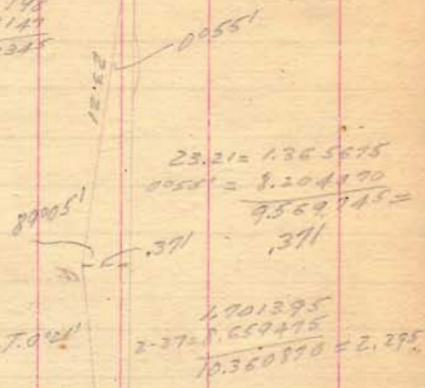 198
147
345
0°55'
23.21
23.21 = 1.365675
0°55' = 8.204070
9.569745 =
.371
89°05'
.371
1.701395
2-37 = 8.659475
10.360870 = 2.295